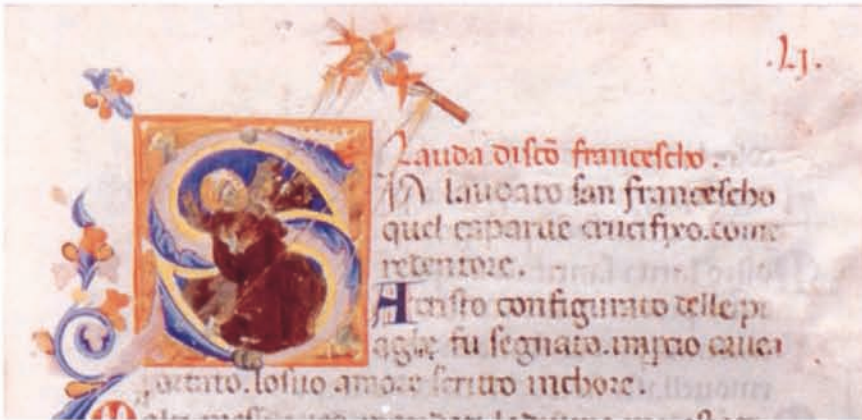 .Lj.
Lauda di scō francescho.
Ia laudato san francescho
quel caparue crucifixo.come
redentore.
A cristo configurato delle pi
aghe fu segnato.inpcio cauea
portato.lo suo amore scritto inchore.